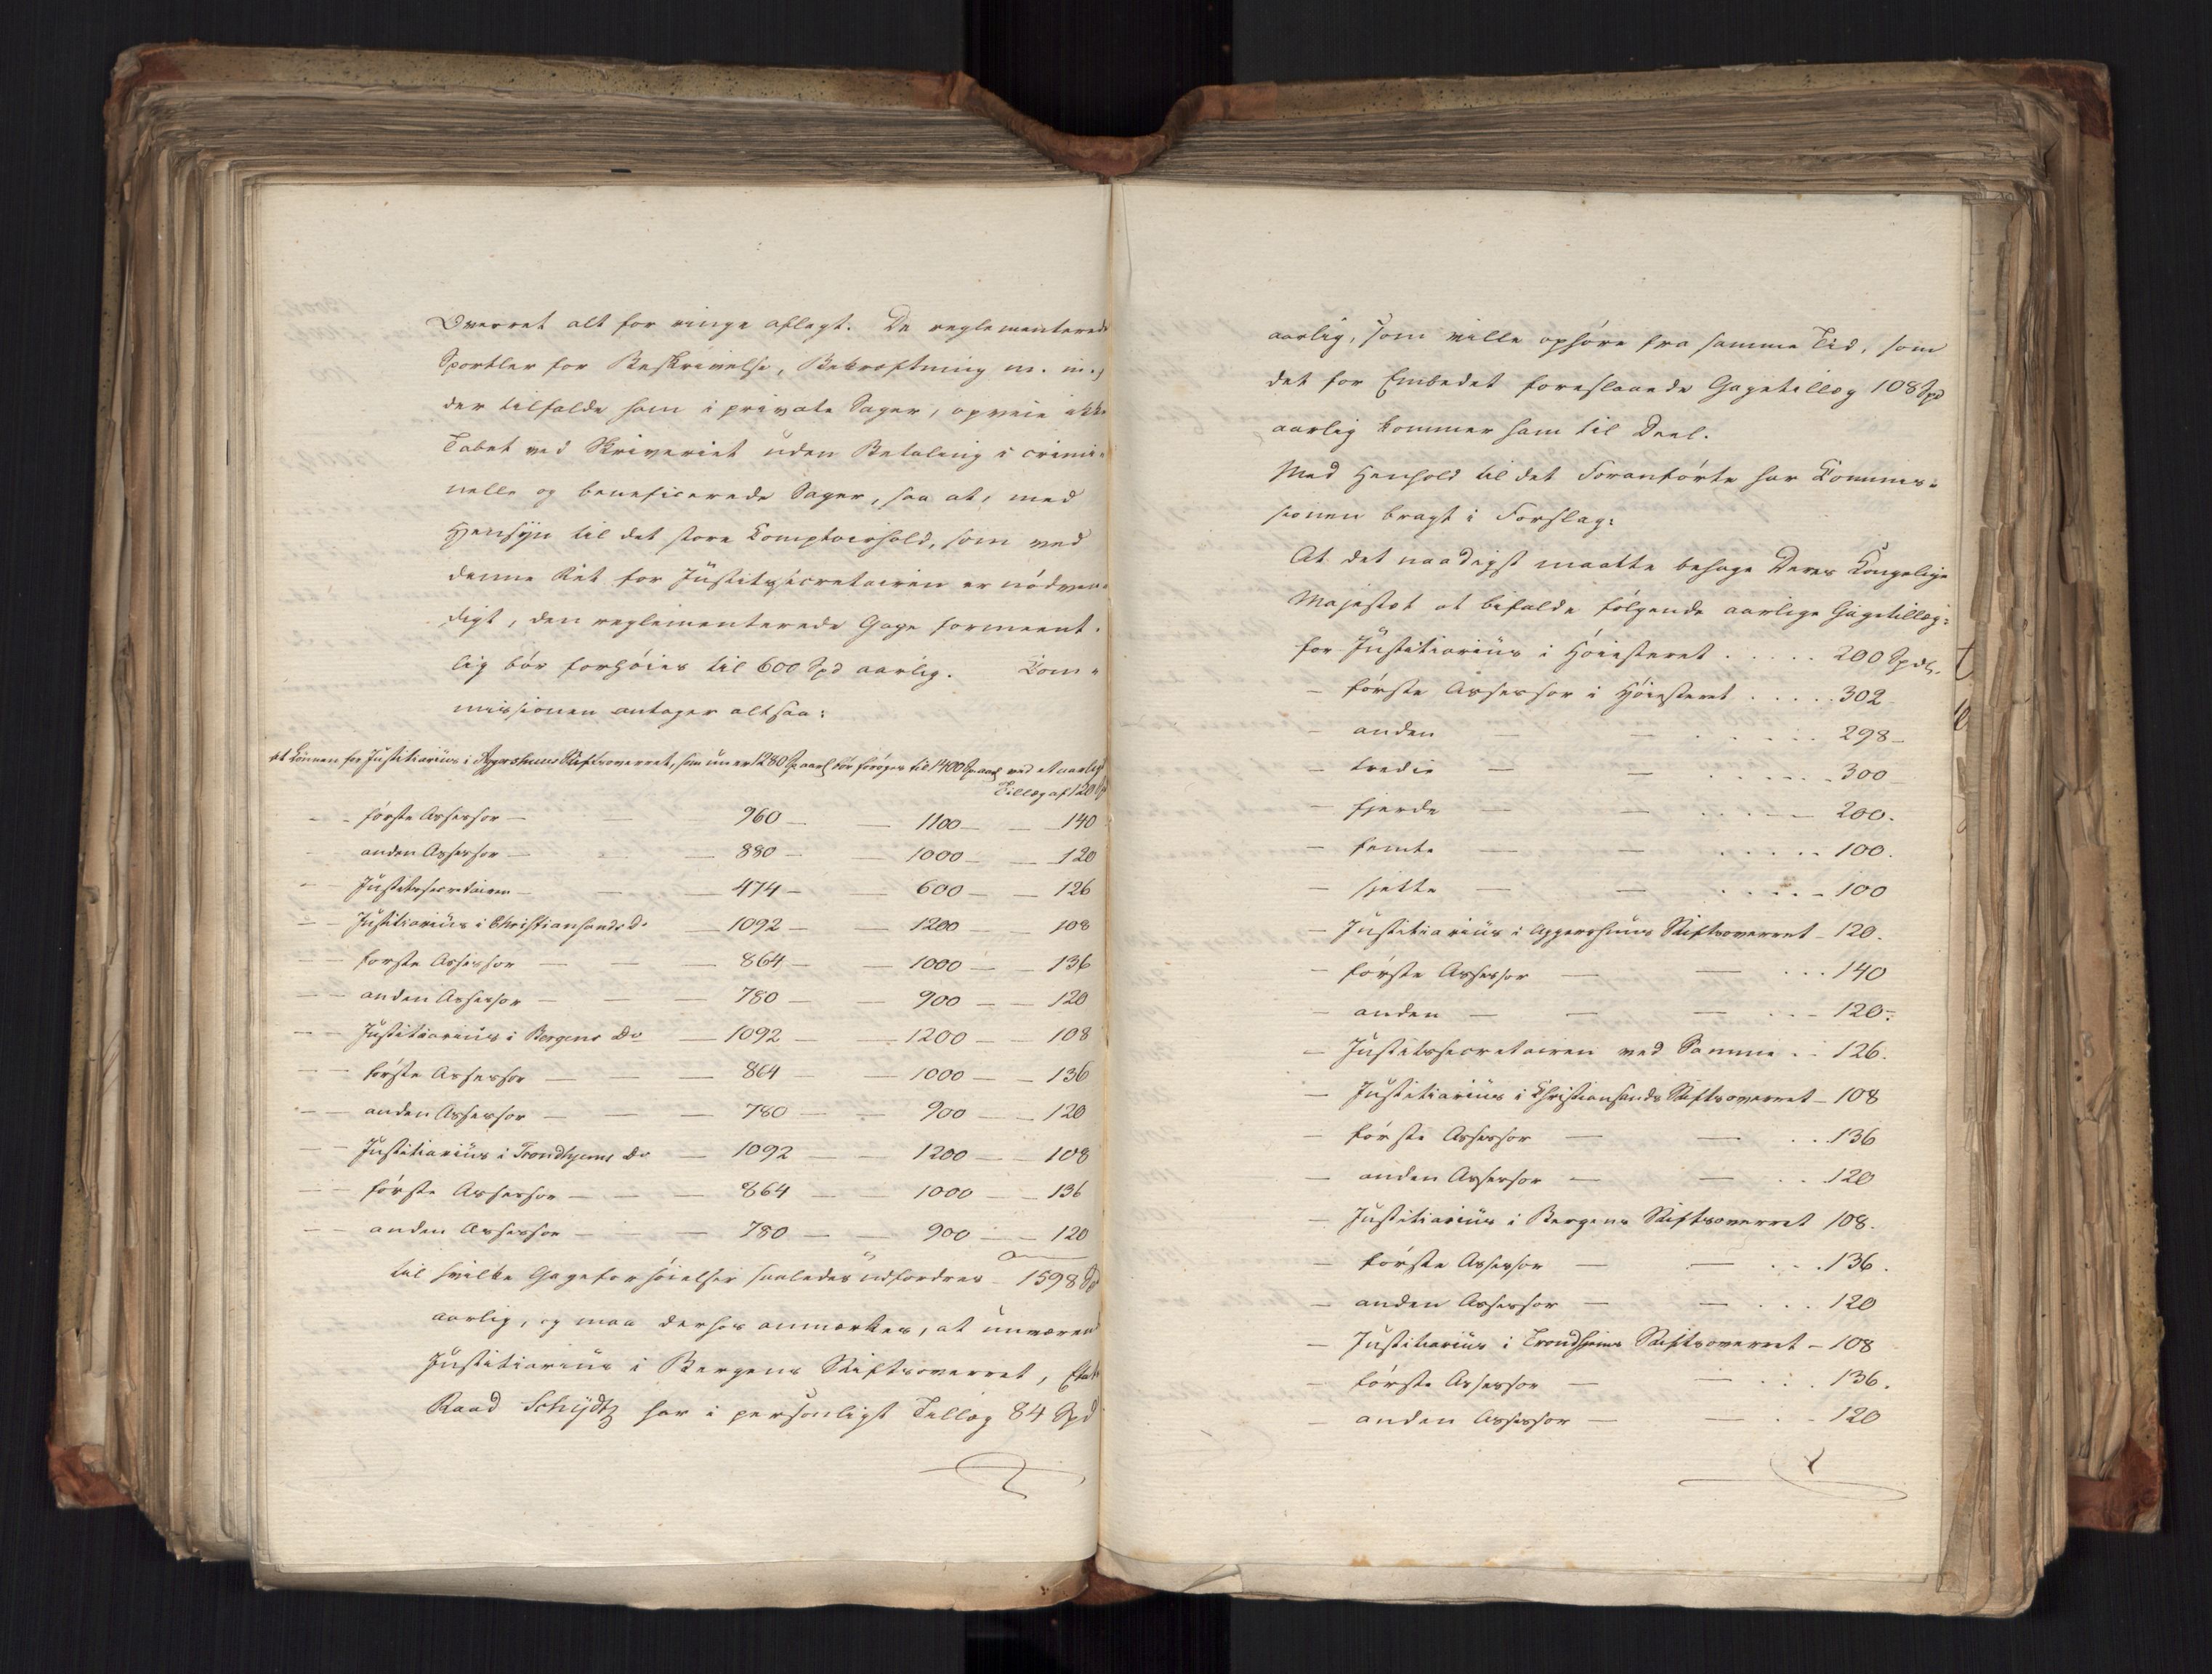 Overret alt for ringe aflagt. De reglementerede
Sportler for Beskrivelse, Bekræftning m. m.,
der tilfalde ham i private Sager, opveie ikke
Tabet ved Skriveriet uden Betaling i crimi-
nelle og beneficerede Sager, saa at, med
Hensyn til det store Comptoirhold, som ved
denne Ret for Justitssecretairen er nödven-
digt, den reglementerede Gage formeent-
lig bör forhöies til 600 Spd aarlig. Kom-
missionen antager altsaa:
at Lönnen for Justitiarius i Aggershuus Stiftsoverret, som nu er 1280 Sp aarl bör foröges til 1400 Sp aarl ved et aarligt
Tillæg af 120 Sp
- - förste Assessor — — 960 — — 1100 — — 140
- anden Assessor — - — 880 — — 1000 — — 120
- - Justitssecretairen — — — 474 — — 600 — — 126
- - Justitiarius i Christiansands do — 1092 — — 1200 — 108
- - förste Assessor — — — 864 — — 1000 — — 136
- - anden Assessor — — — 780 — — 900 — — 120
- - Justitiarius i Bergens do — 1092 — — 1200 — — 108
- - förste Assessor — — — 864 — — 1000 — — 136
- - anden Assessor — — — 780 — — 900 — — 120
- - Justitiarius i Trondhjems do — 1092 — — 1200 — — 108
- - förste Assessor — — — 864 — — 1000 — — 136
- - anden Assessor — — — 780 — — 900 — — 120
til hvilke Gageforhöielser saaledes udfordres - 1598 Sp
aarlig, og maa derhos anmærkes, at nuværende
Justitiarius i Bergens Stiftsoverret, Etats
Raad Schydtz har i personligt Tillæg 84 Spd
aarlig, som ville ophöre fra samme Tid, som
det for Embedet foreslaaede Gagetillæg 108 Spd
aarlig kommer ham til Deel.
Med Henhold til det Foranförte har Kommis-
sionen bragt i Forslag:
At det naadigst maatte behage Deres Kongelige
Majestæt at bifalde fölgende aarlige Gagetillæg:
for Justitiarius i Höiesteret . . . . . 200 Spd.
- förste Assessor i Höiesteret . . . . . 302
- anden — — . . . . . 298
- tredie — — . . . . . 300
- fjerde — — . . . . 200.
- femte — — . . . . . 100.
- sjette — — . . . . 100
- Justitiarius i Aggershuus Stiftsoverret - 120.
- förste Assessor — — . . . 140
- anden — — — . . - 120.
- Justitssecretairen ved Samme . . 126.
- Justitiarius i Christiansands Stiftsoverret - 108
- förste Assessor — — . . 136
- anden Assessor — — . . 120
- Justitiarius i Bergens Stiftsoverret 108.
- förste Assessor — — . . . 136.
- anden Assessor — — . . . 120
- Justitiarius i Trondhjems Stiftsoverret - 108
- förste Assessor — — . . . 136.
- anden Assessor — — . . 120